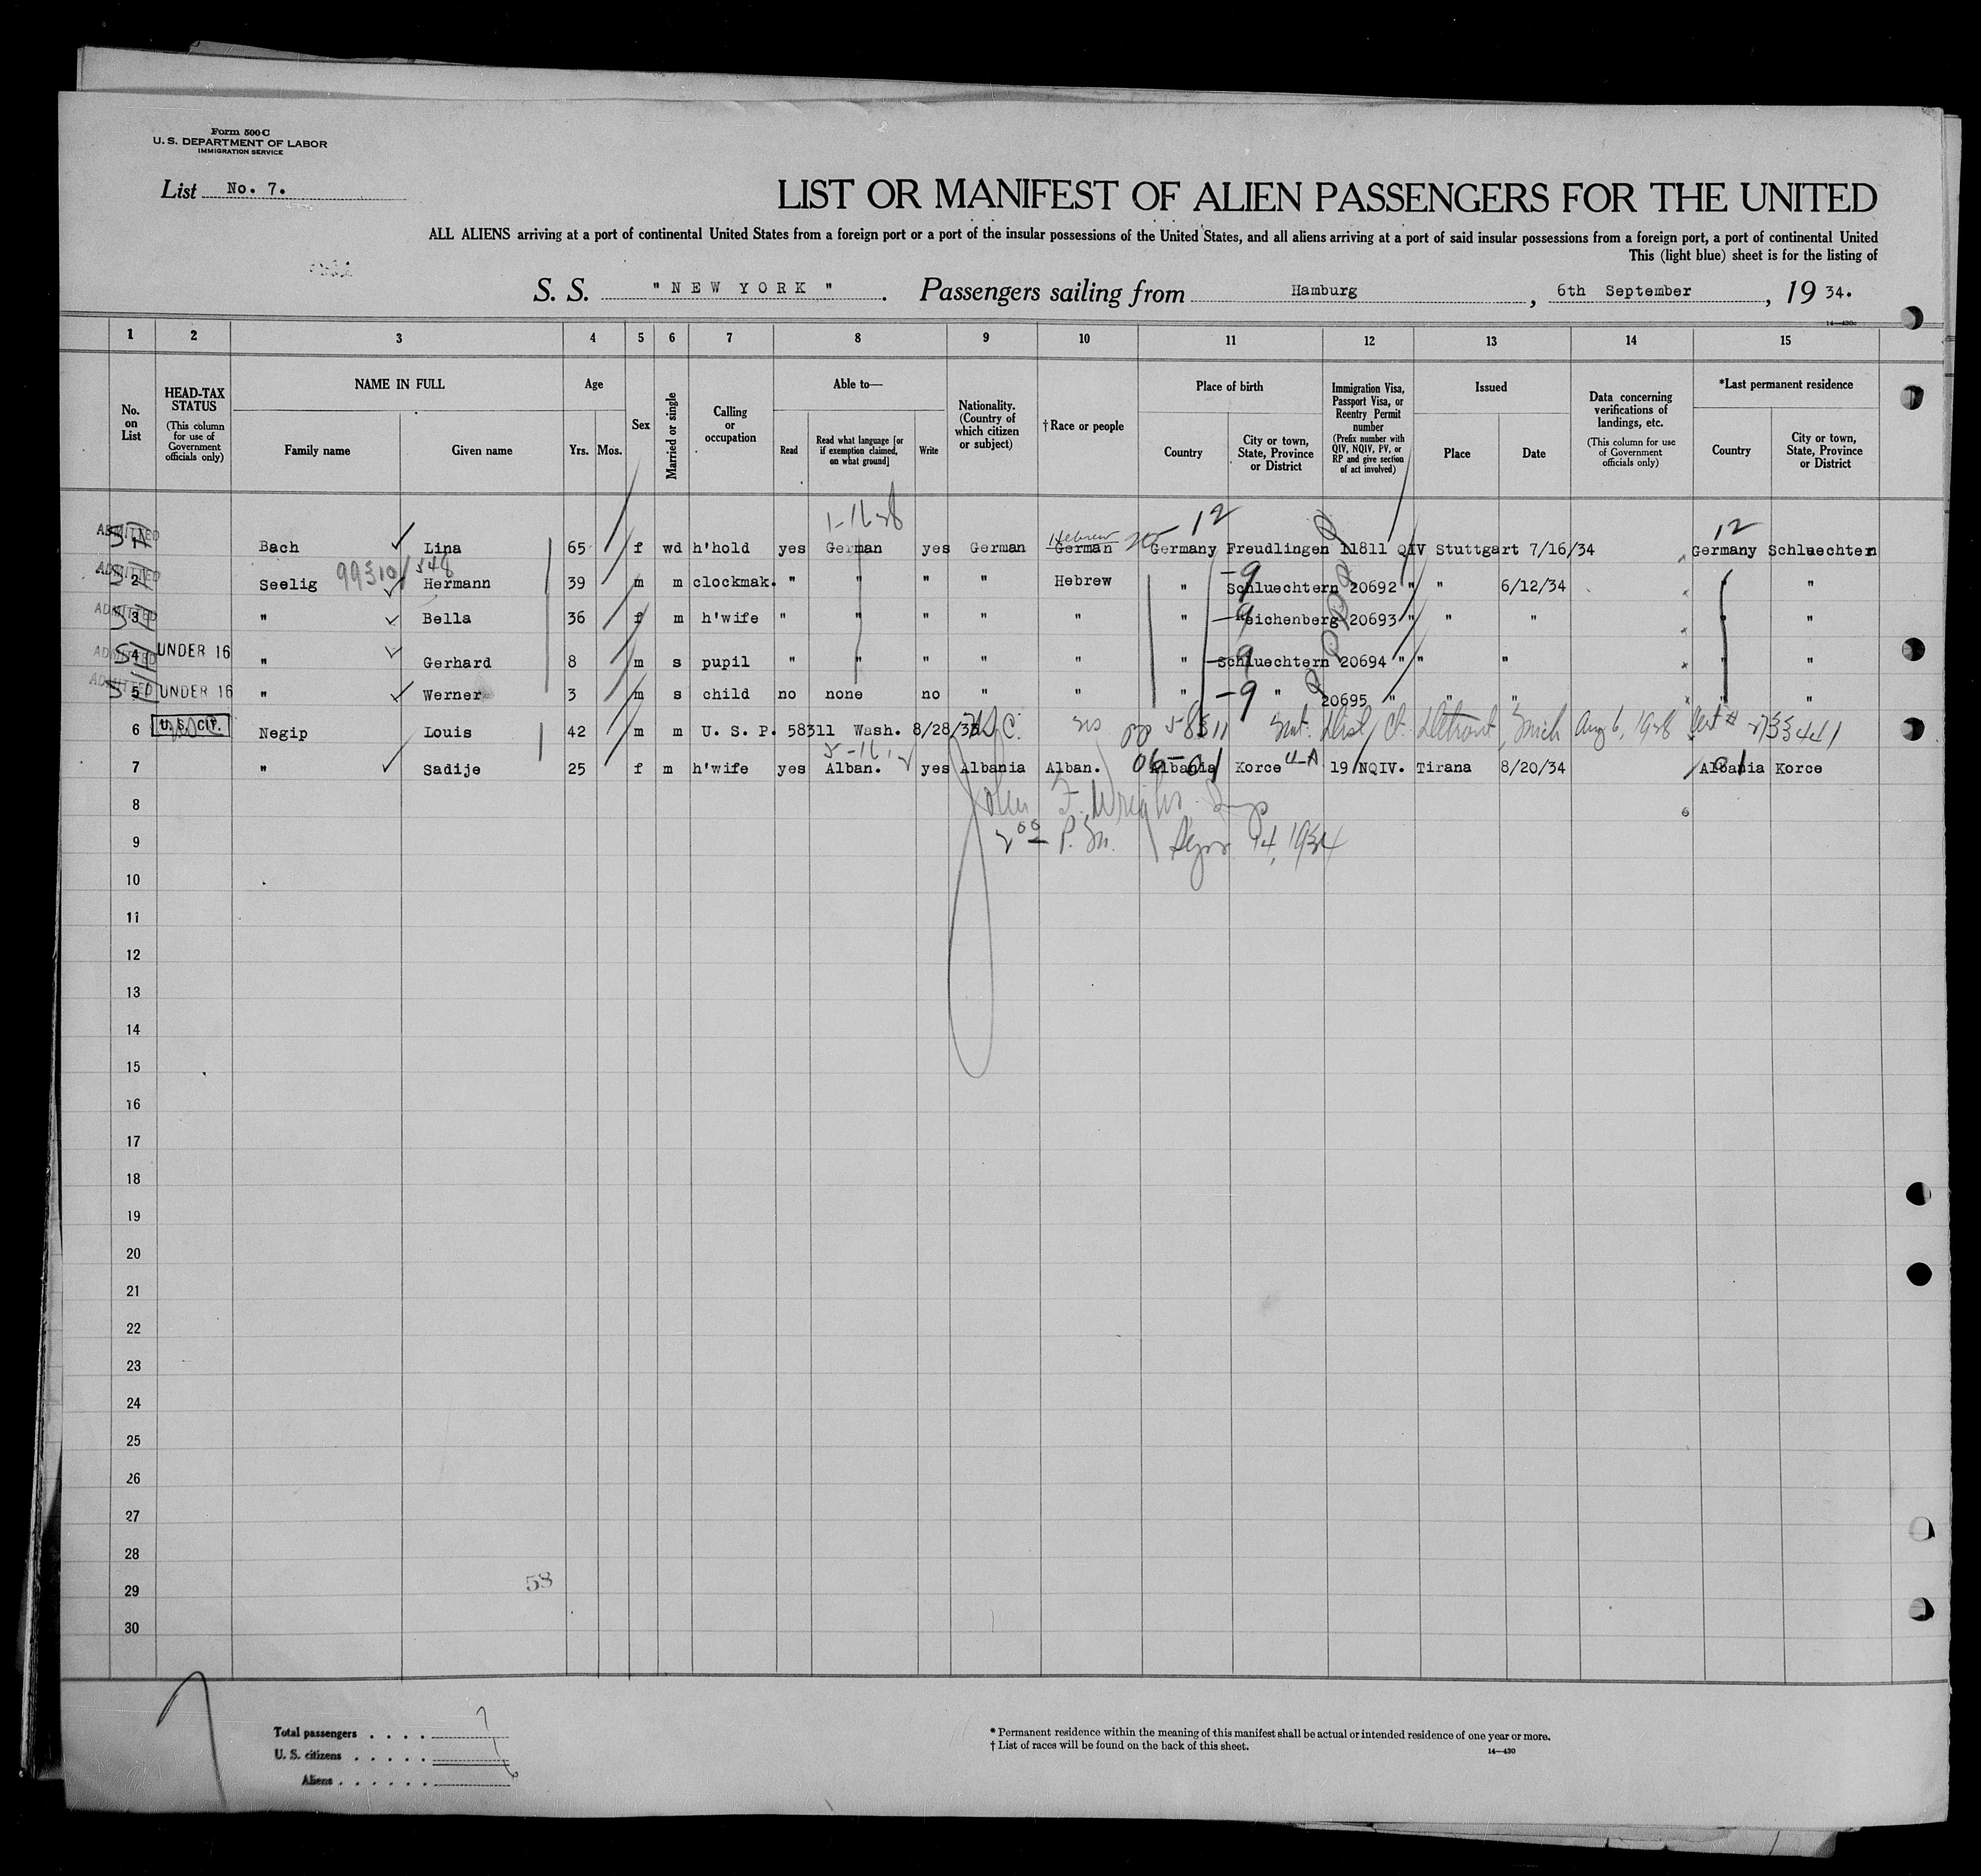 Form 500 C
U. S. DEPARTMENT OF LABOR
IMMIGRATION SERVICE
List No. 7.
LIST OR MANIFEST OF ALIEN PASSENGERS FOR THE UNITED
ALL ALIENS arriving at a port of continental United States from a foreign port or a port of the insular possessions of the United States, and all aliens arriving at a port of said insular possessions from a foreign port, a port of continental United
This (light blue) sheet is for the listing of
S. S. " NEW YORK " . Passengers sailing from Hamburg , 6th September , 19 34.
1 2 3 4 5 6 7 8 9 10 11 12 13 14 15
No. on List
HEAD-TAX STATUS (This column for use of Government officials only)
NAME IN FULL Family name Given name
Age Yrs. Mos.
Sex
Married or single
Calling or occupation
Able to— Read Read what language [or if exemption claimed, on what ground] Write
Nationality. (Country of which citizen or subject)
†Race or people
Place of birth Country City or town, State, Province or District
Immigration Visa, Passport Visa, or Reentry Permit number (Prefix number with QIV, NQIV, PV, or RP and give section of act involved)
Issued Place Date
Data concerning verifications of landings, etc. (This column for use of Government officials only)
*Last permanent residence Country City or town, State, Province or District
1-16-28 12 12
ADMITTED 1 Bach Lina 65 f wd h'hold yes German yes German Hebrew German Germany Freudlingen 11811 QIV Stuttgart 7/16/34 Germany Schluechtern
ADMITTED 2 Seelig 99310/548 Hermann 39 m m clockmak. " " " " Hebrew " -9 Schluechtern 20692 " " 6/12/34 " "
ADMITTED 3 " Bella 36 f m h'wife " " " " " " -9 Reichenberg 20693 " " " " "
ADMITTED 4 UNDER 16 " Gerhard 8 m s pupil " " " " " " -9 Schluechtern 20694 " " " " "
ADMITTED 5 UNDER 16 " Werner 3 m s child no none no " " " -9 " 20695 " " " " "
6 U. S. CIT. Negip Louis 42 m m U. S. P. 58311 Wash. 8/28/33 PP 58311 Dist. Ct. Detroit, Mich Aug 6, 1928 Cert # 2733441
7 " Sadije 25 f m h'wife yes Alban. yes Albania Alban. Albania Korce 19 NQIV. Tirana 8/20/34 Albania Korce
John F. Wright Insp
2 00 P.M. Sept 14, 1934
8
9
10
11
12
13
14
15
16
17
18
19
20
21
22
23
24
25
26
27
28
29
58
30
Total passengers . . . . 7
U. S. citizens . . . . . 
Aliens . . . . . .
* Permanent residence within the meaning of this manifest shall be actual or intended residence of one year or more.
† List of races will be found on the back of this sheet.
14—430